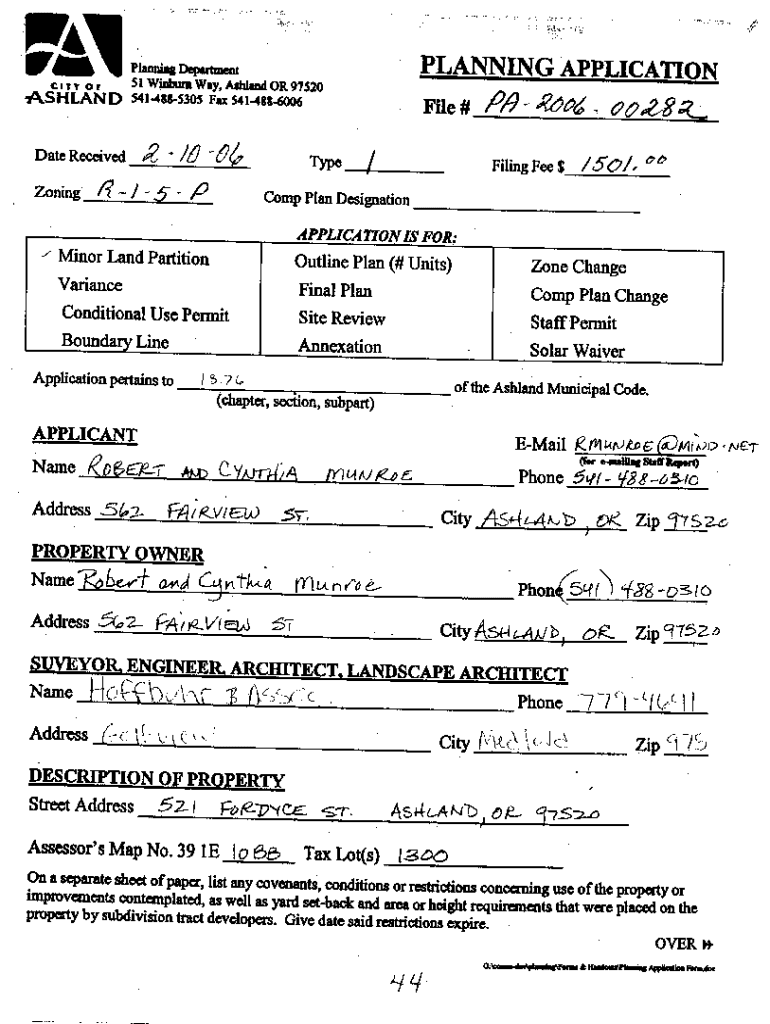 CITY OF
ASHLAND
Planning Department
51 Winburn Way, Ashland OR 97520
541-488-5305 Fax 541-488-6006
PLANNING APPLICATION
File # PA-2006-00282
Date Received 2-10-06 Type 1 Filing Fee $ 1501.00
Zoning R-1-5-P Comp Plan Designation
APPLICATION IS FOR:
✓ Minor Land Partition Outline Plan (# Units) Zone Change
Variance Final Plan Comp Plan Change
Conditional Use Permit Site Review Staff Permit
Boundary Line Annexation Solar Waiver
Application pertains to 18.76 of the Ashland Municipal Code.
(chapter, section, subpart)
APPLICANT
E-Mail RMUNROE@MIND.NET
(for e-mailing Staff Report)
Name ROBERT AND CYNTHIA MUNROE Phone 541-488-0310
Address 562 FAIRVIEW ST. City ASHLAND, OR Zip 97520
PROPERTY OWNER
Name Robert and Cynthia Munroe Phone (541) 488-0310
Address 562 FAIRVIEW ST City ASHLAND, OR Zip 97520
SUVEYOR, ENGINEER, ARCHITECT, LANDSCAPE ARCHITECT
Name Hoffbuhr & Assoc. Phone 779-4641
Address City Medford Zip 975
DESCRIPTION OF PROPERTY
Street Address 521 FORDYCE ST. ASHLAND, OR 97520
Assessor's Map No. 39 1E 10BB Tax Lot(s) 1300
On a separate sheet of paper, list any covenants, conditions or restrictions concerning use of the property or
improvements contemplated, as well as yard set-back and area or height requirements that were placed on the
property by subdivision tract developers. Give date said restrictions expire.
OVER
G:\comm-dev\planning\Forms & Handouts\Planning Application Form.doc
44